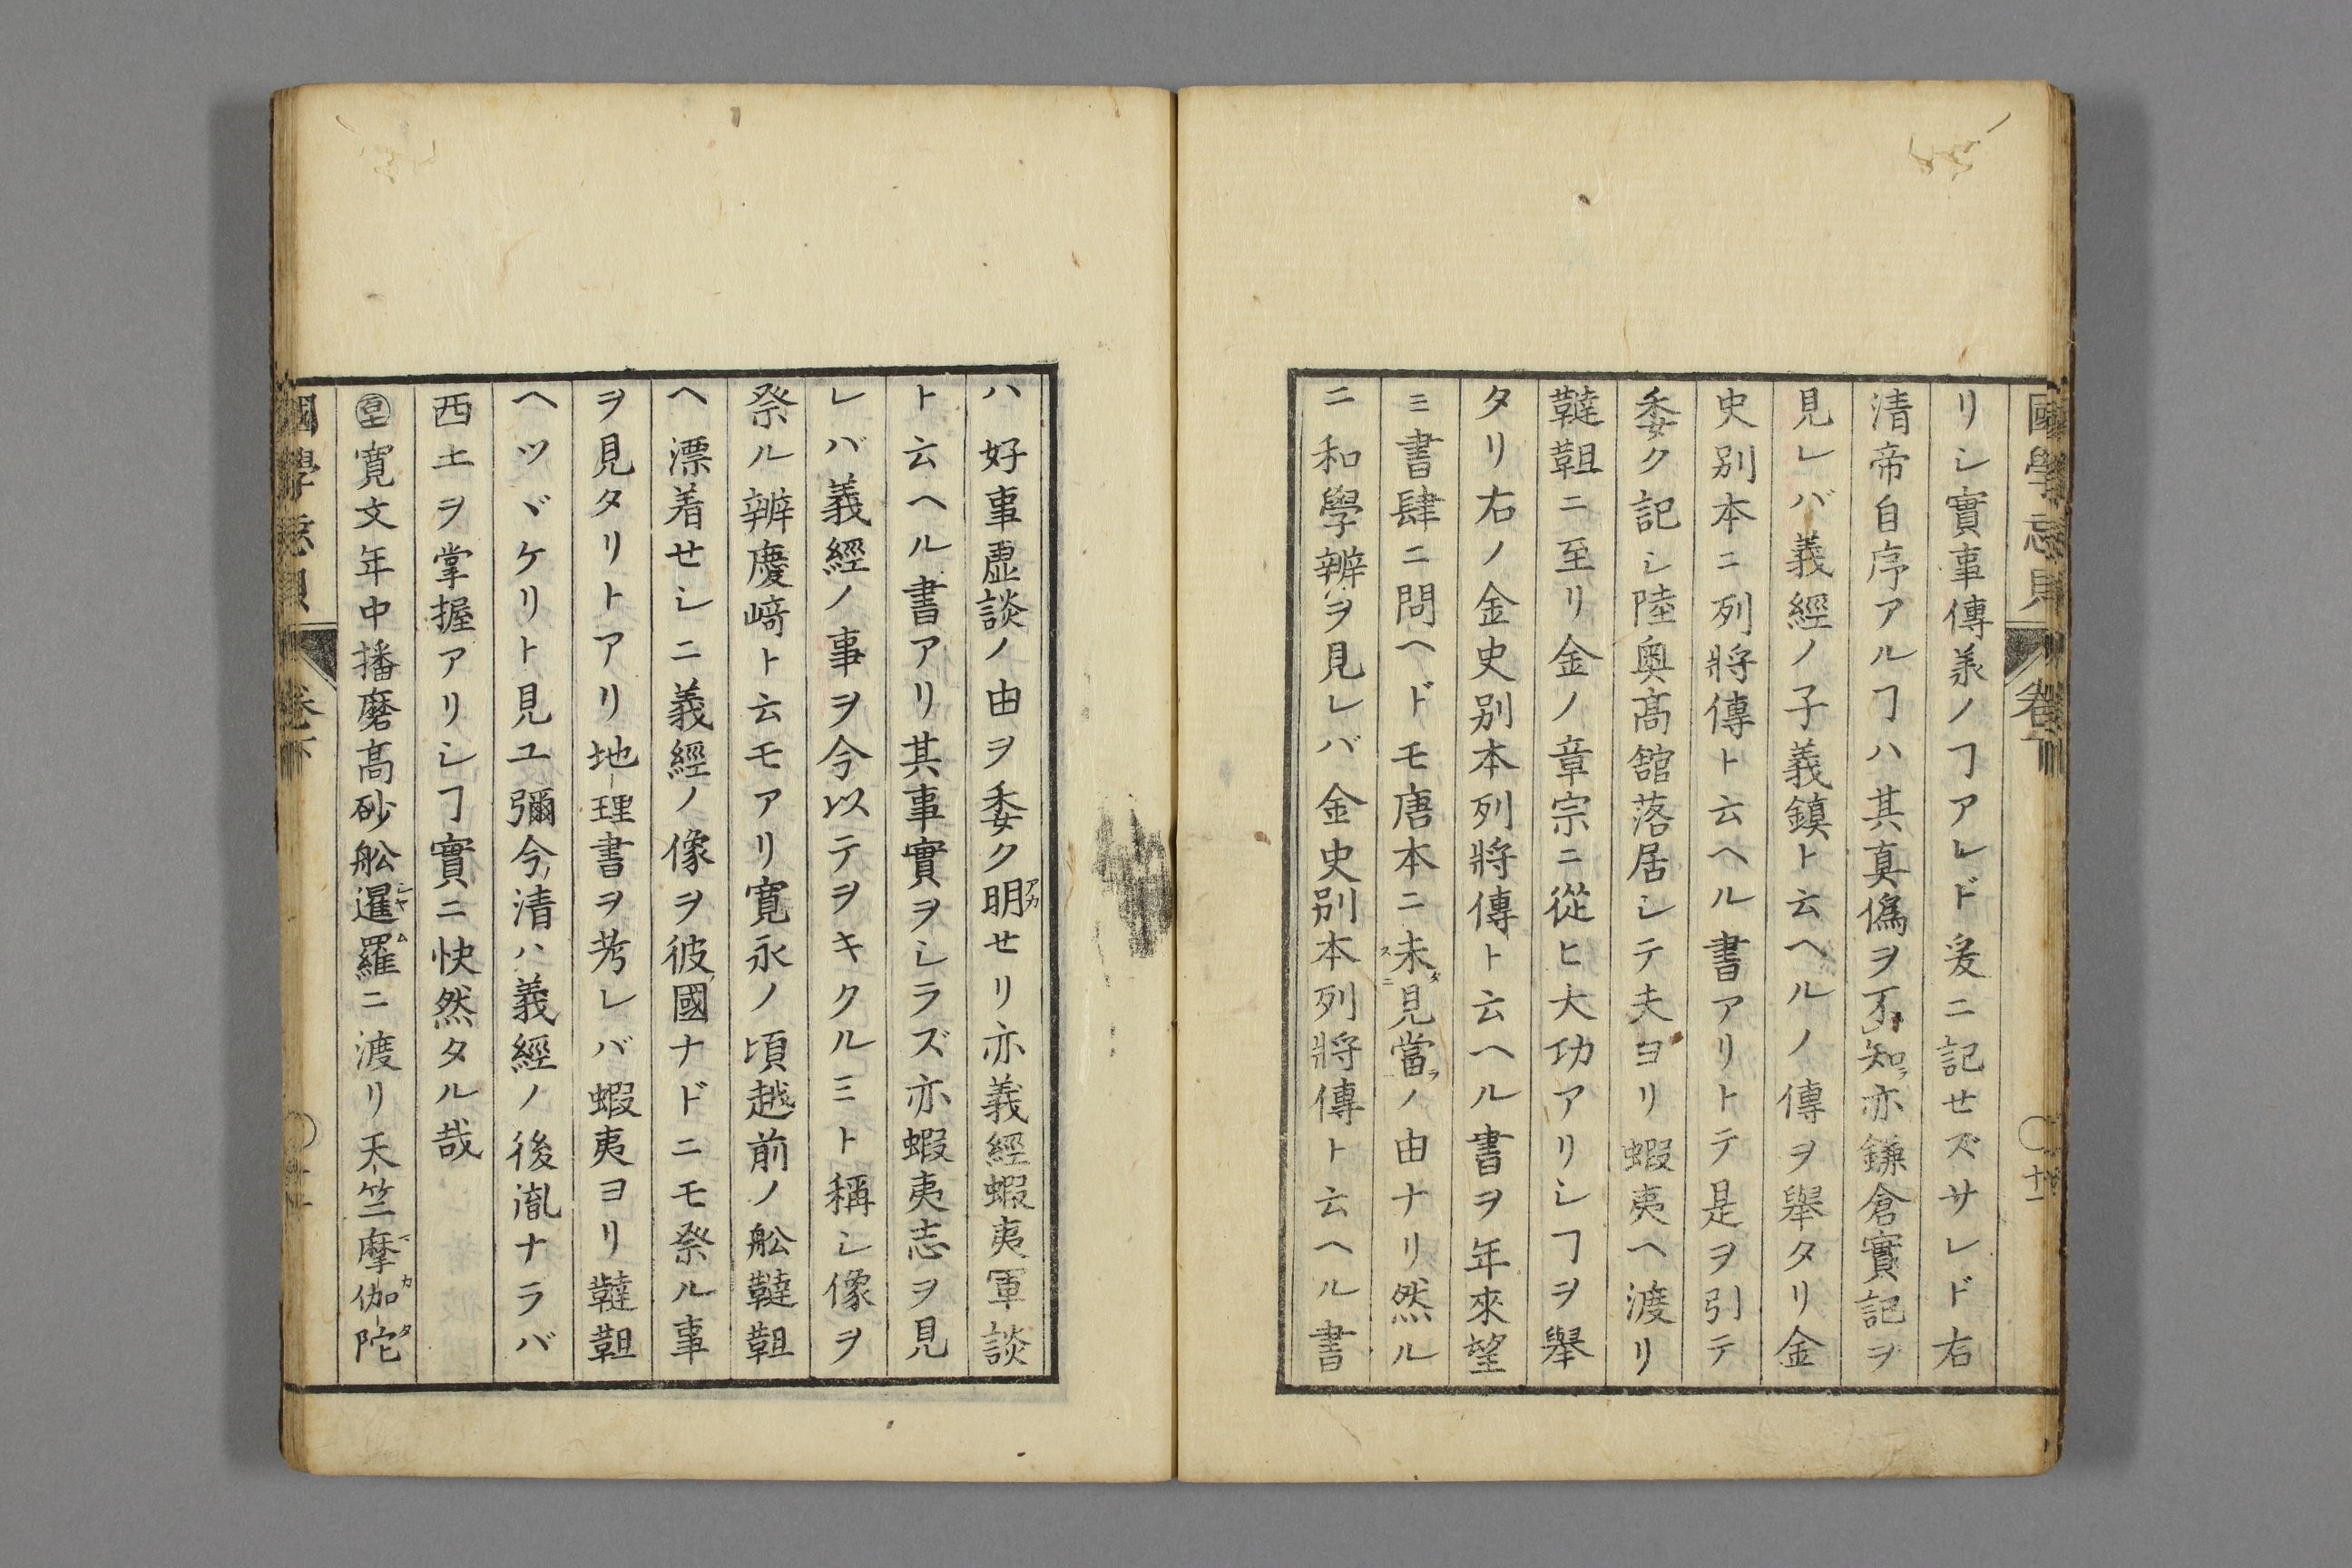 國學忘貝 卷下
リシ實事傳義ノヿアレド爰ニ記せズサレド右
清帝自序アルヿハ其真僞ヲ不知亦鎌倉實記ヲ
見レバ義經ノ子義鎮ト云ヘルノ傳ヲ舉タリ金
史別本ニ列將傳ト云ヘル書アリトテ是ヲ引テ
委ク記シ陸奥髙舘落居シテ夫ヨリ蝦夷ヘ渡リ
韃靼ニ至リ金ノ章宗ニ從ヒ大功アリシヿヲ舉
タリ右ノ金史別本列將傳ト云ヘル書ヲ年來望
ミ書肆ニ問ヘドモ唐本ニ未見當ノ由ナリ然ル
ニ和學辨ヲ見レバ金史別本列將傳ト云ヘル書
ハ好事虚談ノ由ヲ委ク明せリ亦義經蝦夷軍談
ト云ヘル書アリ其事實ヲシラズ亦蝦夷志ヲ見
レバ義經ノ事ヲ今以テヲキクルミト稱シ像ヲ
祭ル辨慶﨑ト云モアリ寛永ノ頃越前ノ舩韃靼
ヘ漂着せシニ義經ノ像ヲ彼國ナドニモ祭ル事
ヲ見タリトアリ地理書ヲ考レバ蝦夷ヨリ韃靼
ヘツヾケリト見ユ彌今ノ清ハ義經ノ後胤ナラバ
西土ヲ掌握アリシヿ實ニ快然タル哉
寛文年中播磨髙砂舩暹羅ニ渡リ天竺摩伽陀
國學忘貝 卷下